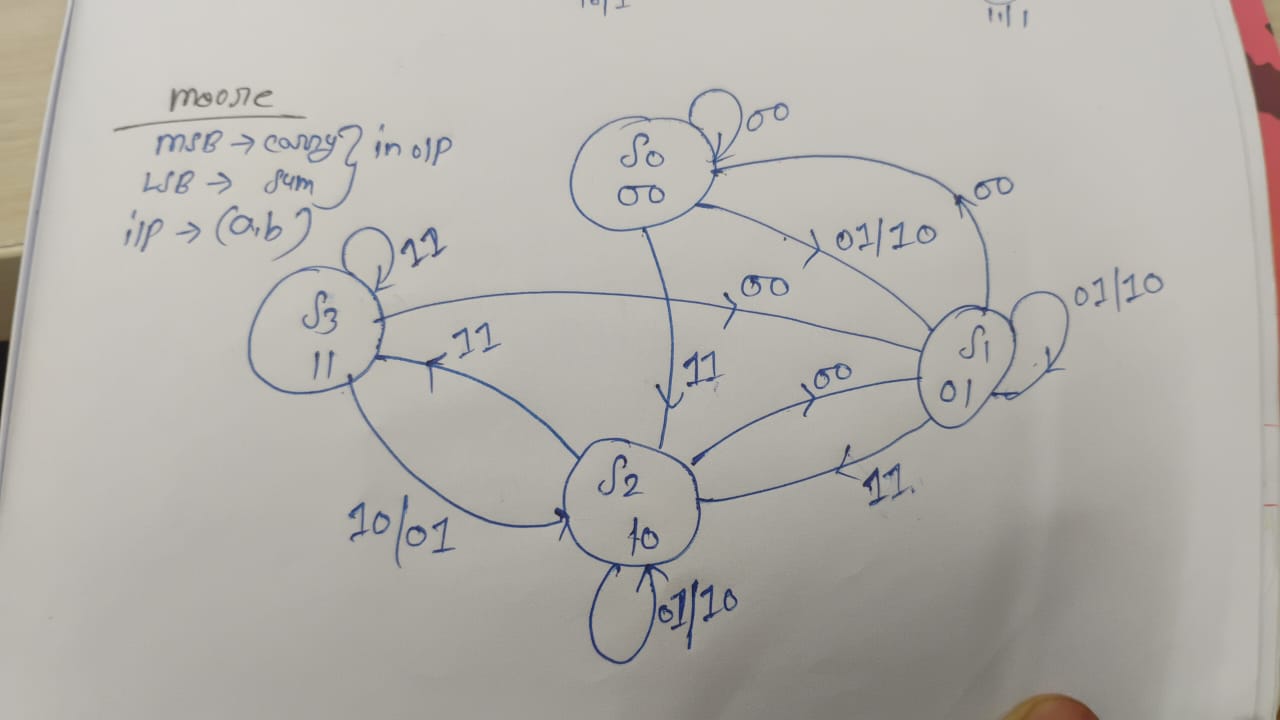 10/1
11/1
moore
MSB → carry } in o/p
LSB → sum
i/p → (a,b)
S0
00
00
00
01/10
11
S3
11
00
01/10
11
S1
01
11
00
11.
S2
10
10/01
01/10